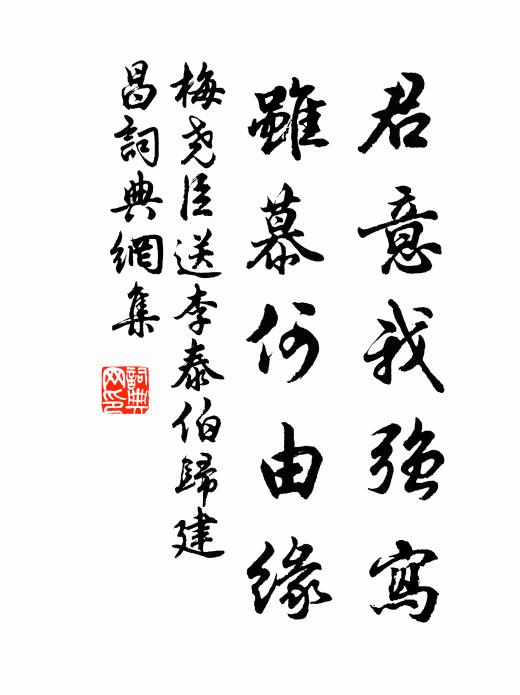 君意我強寫
雖慕何由緣
梅堯臣送李泰伯歸建
昌詞典網集
詞典
网印